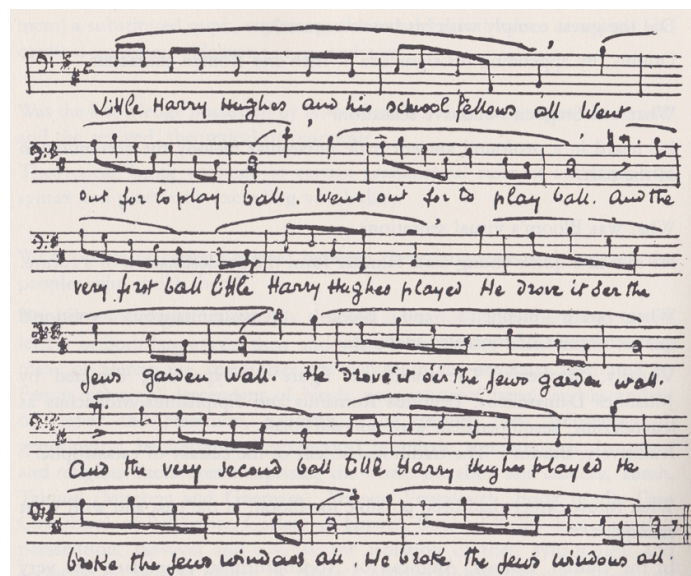 Little Harry Hughes and his school fellows all Went
out for to play ball. Went out for to play ball. And the
very first ball little Harry Hughes played He drove it o'er the
Jews garden wall. He drove it o'er the Jews garden wall.
And the very second ball little Harry Hughes played He
broke the Jews windows all. He broke the Jews windows all.